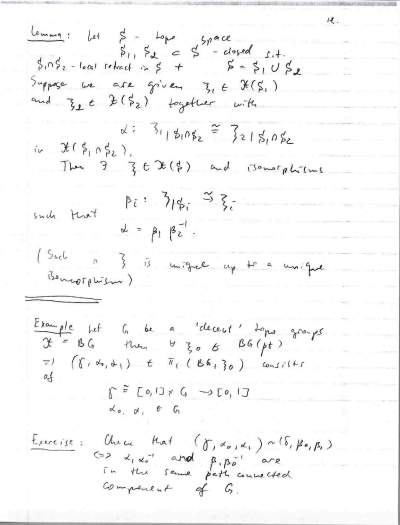 12.
Lemma: Let S - topo space
S₁, S₂ ⊂ S - closed s.t.
S₁∩S₂ - local retract in S + S = S₁ ∪ S₂
Suppose we are given ξ₁ ∈ X(S₁)
and ξ₂ ∈ X(S₂) together with
α: ξ₁|S₁∩S₂ ≅ ξ₂|S₁∩S₂
in X(S₁∩S₂).
Then ∃ ξ ∈ X(S) and isomorphisms
βᵢ: ξ|Sᵢ ≅ ξᵢ
such that
α = β₁ β₂⁻¹.
(Such a ξ is unique up to a unique
isomorphism)
Example Let G be a 'decent' topo groups
X = BG then ∀ ξ₀ ∈ BG(pt)
=> (γ, α₀, α₁) ∈ π₁(BG, ξ₀) consists
of
γ ≅ [0,1] × G → [0,1]
α₀, α₁ ∈ G
Exercise: Check that (γ, α₀, α₁) ~ (δ, β₀, β₁)
<=> α₁α₀⁻¹ and β₁β₀⁻¹ are
in the same path connected
component of G.